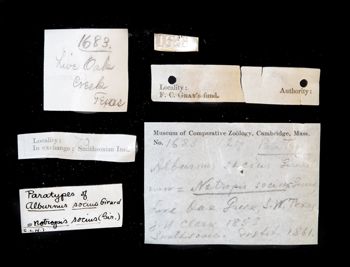 1683.
Live Oak
Creek
Texas
Locality:
F. C. Gray's fund.
Authority:
Locality:
In exchange; Smithsonian Ins.
Paratypes of
Alburnus socius Girard
= Notropis socius (Gir.)
Museum of Comparative Zoology, Cambridge, Mass.
No. 1683
Alburnus socius
now = Notropis socius
Live Oak Creek, S.W. Texas
J. H. Clark
Smithsonian 1861.